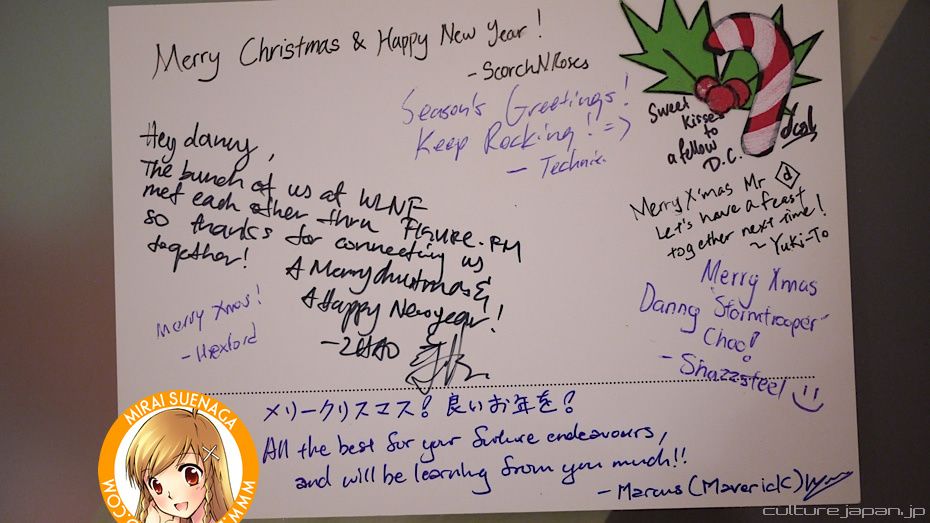 Merry Christmas & Happy New Year!
- ScorchNRoses
Season's Greetings!
Keep Rocking! =>
- Technic.
Sweet
Kisses
to
a fellow
D.C.
Hey danny,
The bunch of us at WLNF
met each other thru Figure.FM
so thanks for connecting us
together!
A Merry christmas &
A Happy New year!
- ZHAO
Merry X'mas Mr d
Let's have a feast
together next time!
~ Yuki-To
Merry Xmas
Danny "Stormtrooper"
Choo!
- Shazzsteel
Merry Xmas!
- Hexford
メリークリスマス! 良いお年を!
All the best for your future endeavours,
and will be learning from you much!!
- Marcus (Maverick)
MIRAI SUENAGA
culturejapan.jp